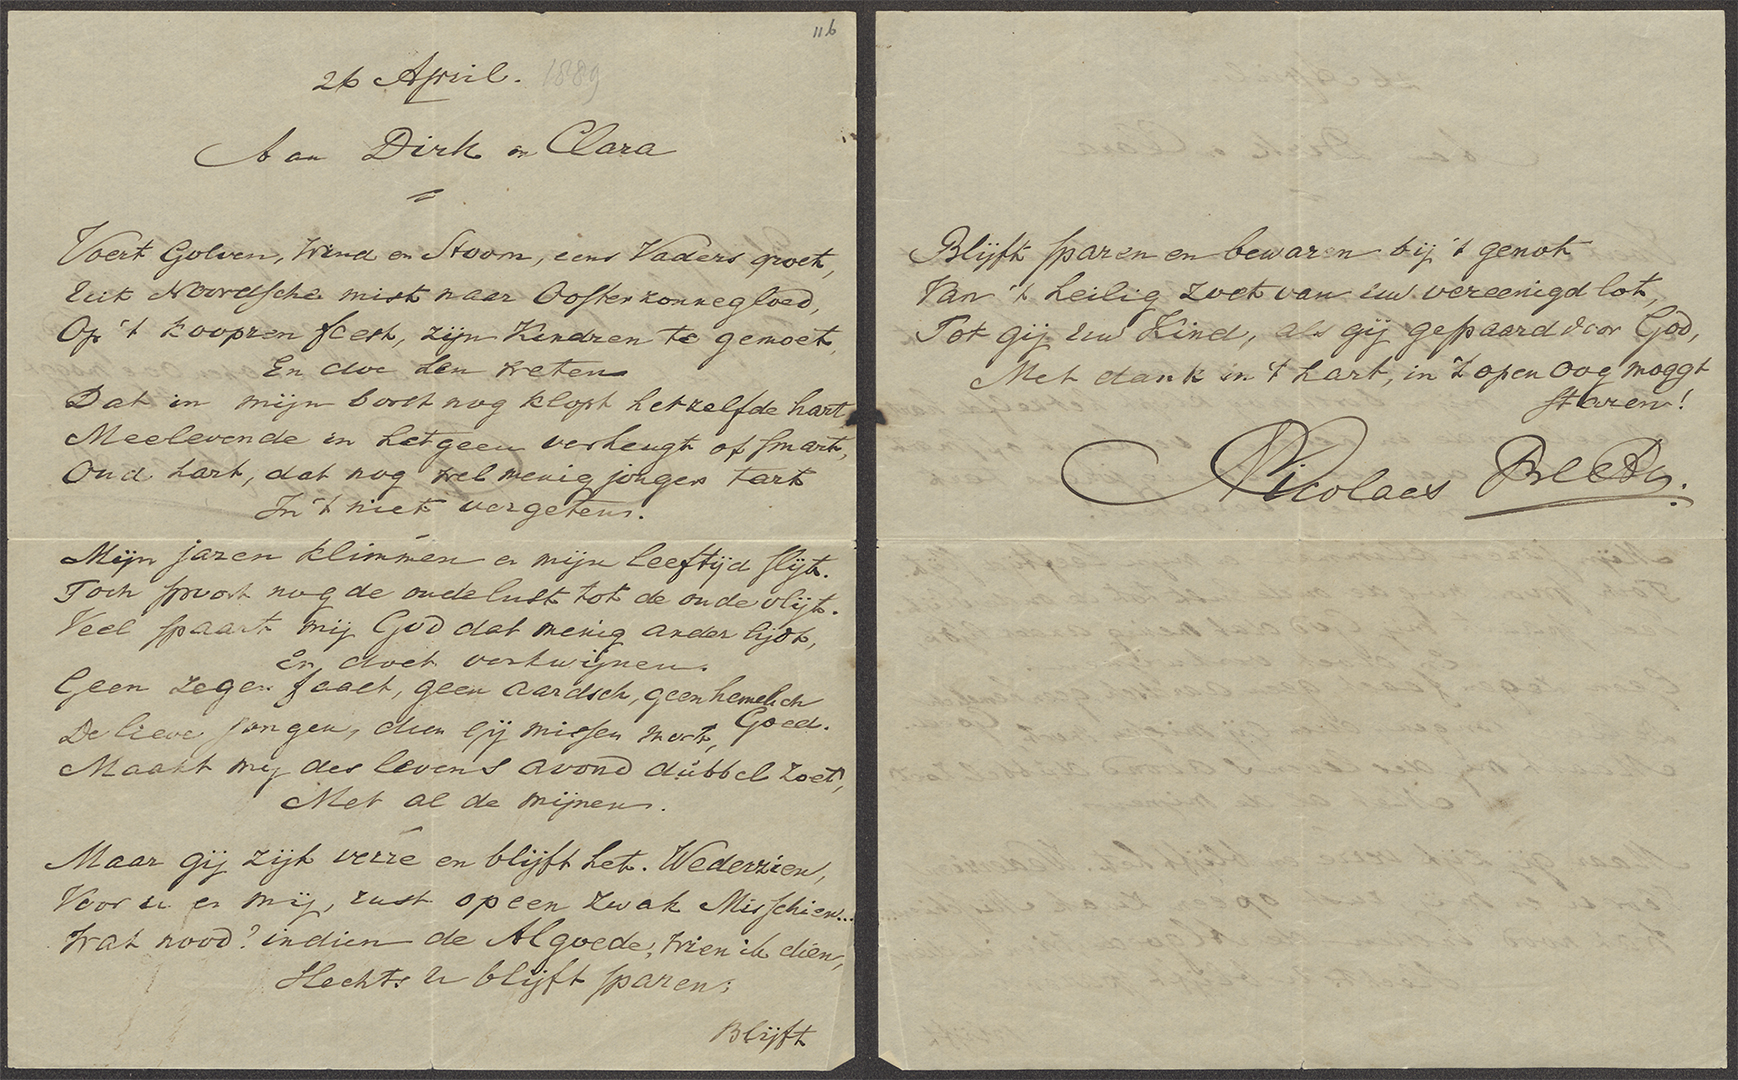 116
26 April. 1889
Aan Dirk en Clara
Voert Golven, Wind en Stoom, eens Vaders groet,
Uit Noordsche mist naar Oosterzonnegloed,
Op 't koopren feest, zijn Kindren te gemoet,
En doe hen weten
Dat in mijn borst nog klopt hetzelfde hart
Meelevende in hetgeen verheugt of smart,
Oud hart, dat nog wel menig jonger tart
In 't niet vergeten.
Mijn jaren klimmen en mijn leeftijd slijt.
Toch spoort nog de oude lust tot de oude vlijt.
Veel spaart mij God dat menig ander lijdt,
En doet verkwijnen.
Geen zegen faalt, geen aardsch, geen hemelsch
Goed.
De lieve jongen, dien gij missen moet,
Maakt mij des levens avond dubbel zoet,
Met al de mijnen.
Maar gij zijt verre en blijft het. Wederzien,
Voor u en mij, rust op een zwak Misschien...
Wat nood? indien de Algoede, wien ik dien,
Slechts U blijft sparen;
Blijft
Blijft sparen en bewaren bij 't genot
Van 't heilig zoet van uw vereenigd lot,
Tot gij uw Kind, als gij gespaard door God,
Met dank in 't hart, in 't open oog moogt
staren!
Nicolaas Beets.